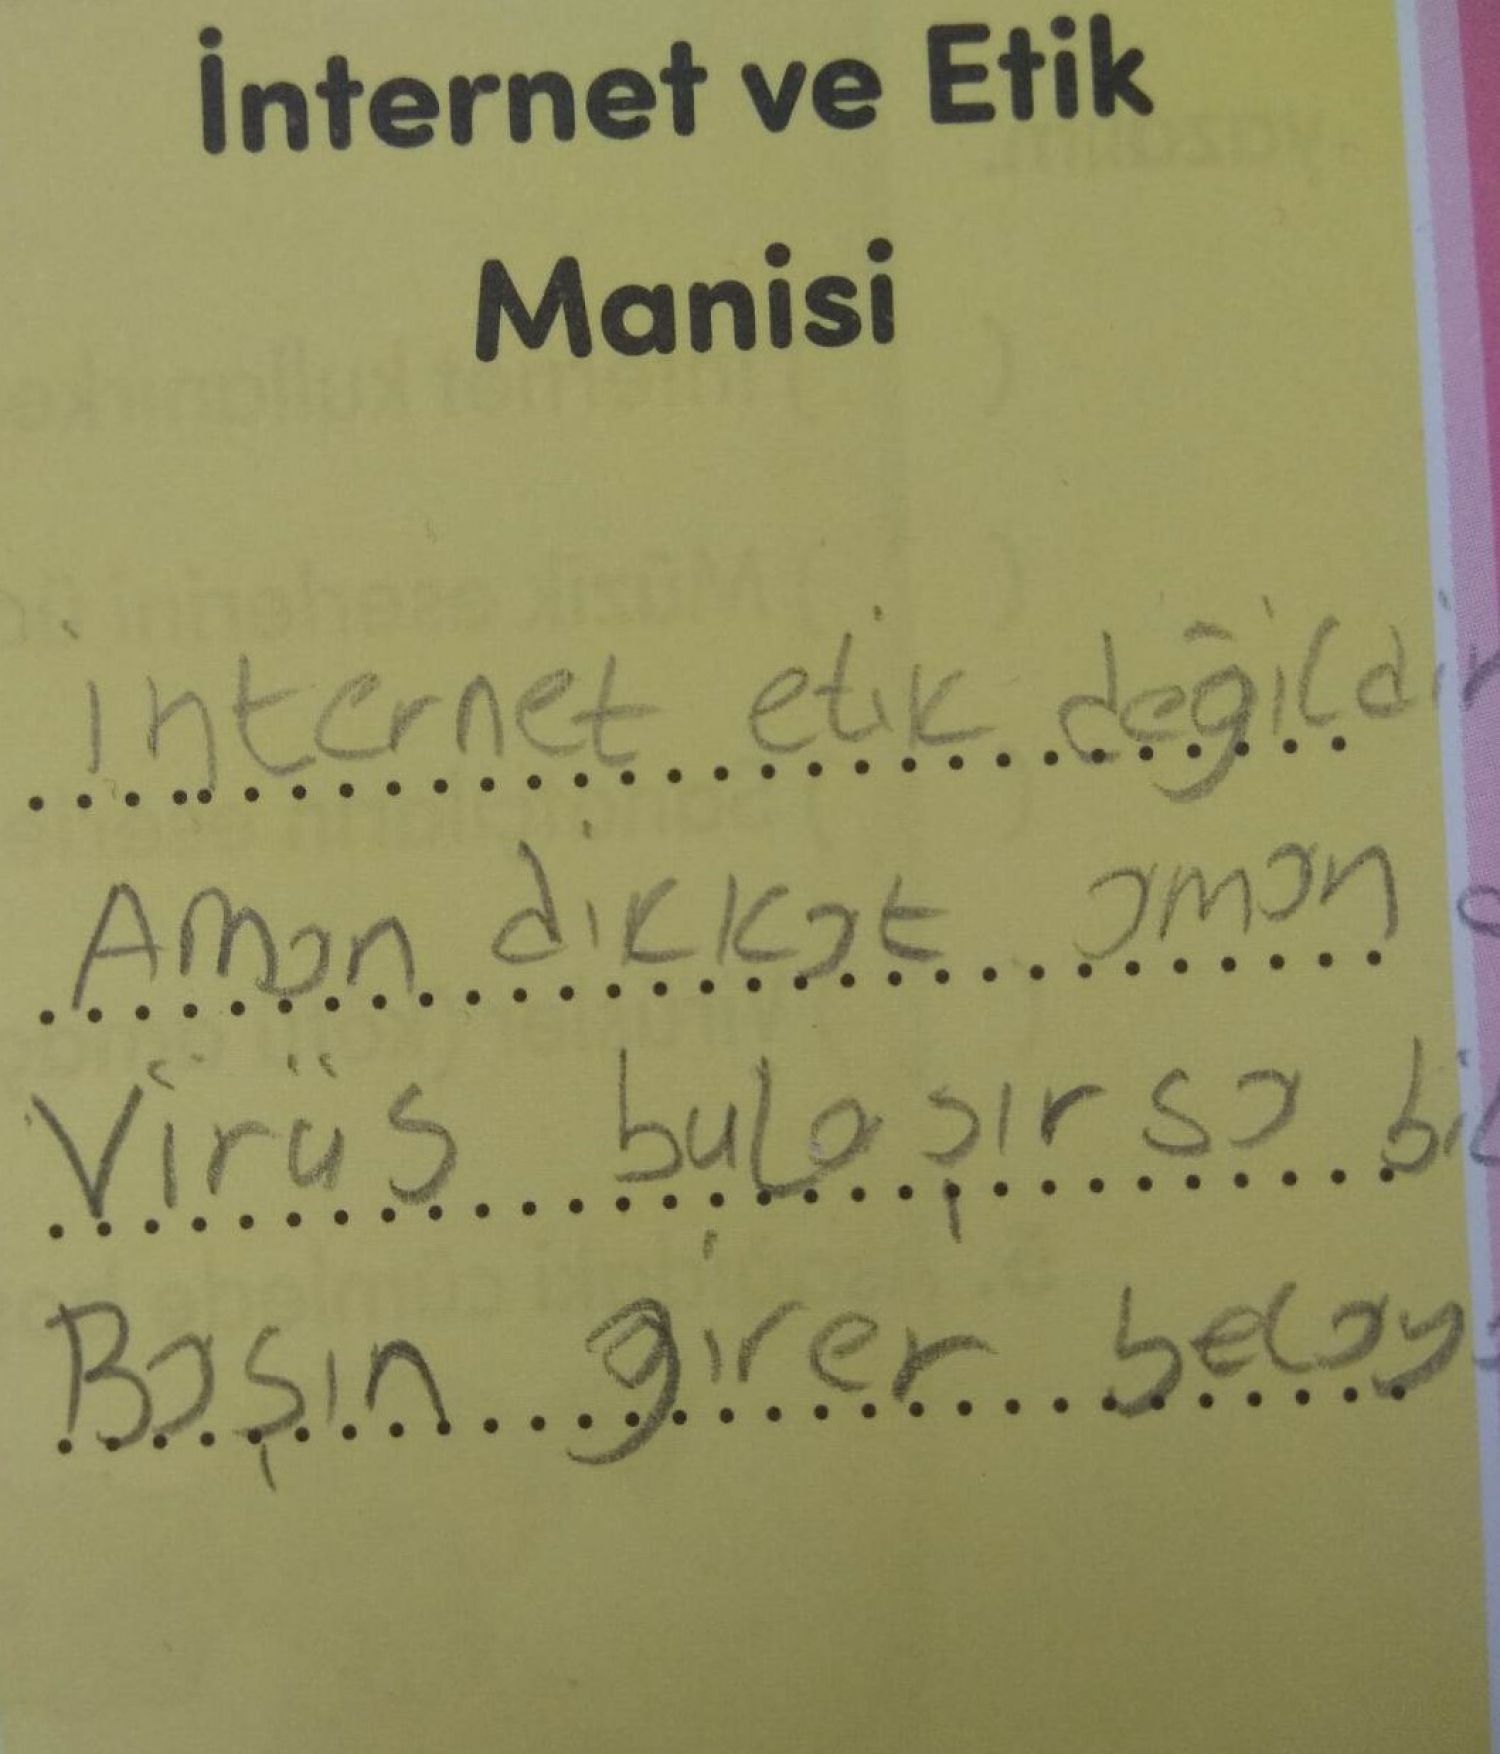 İnternet ve Etik
Manisi
İnternet etik değildir
Aman dikkat aman
Virüs bulaşırsa
Başın girer